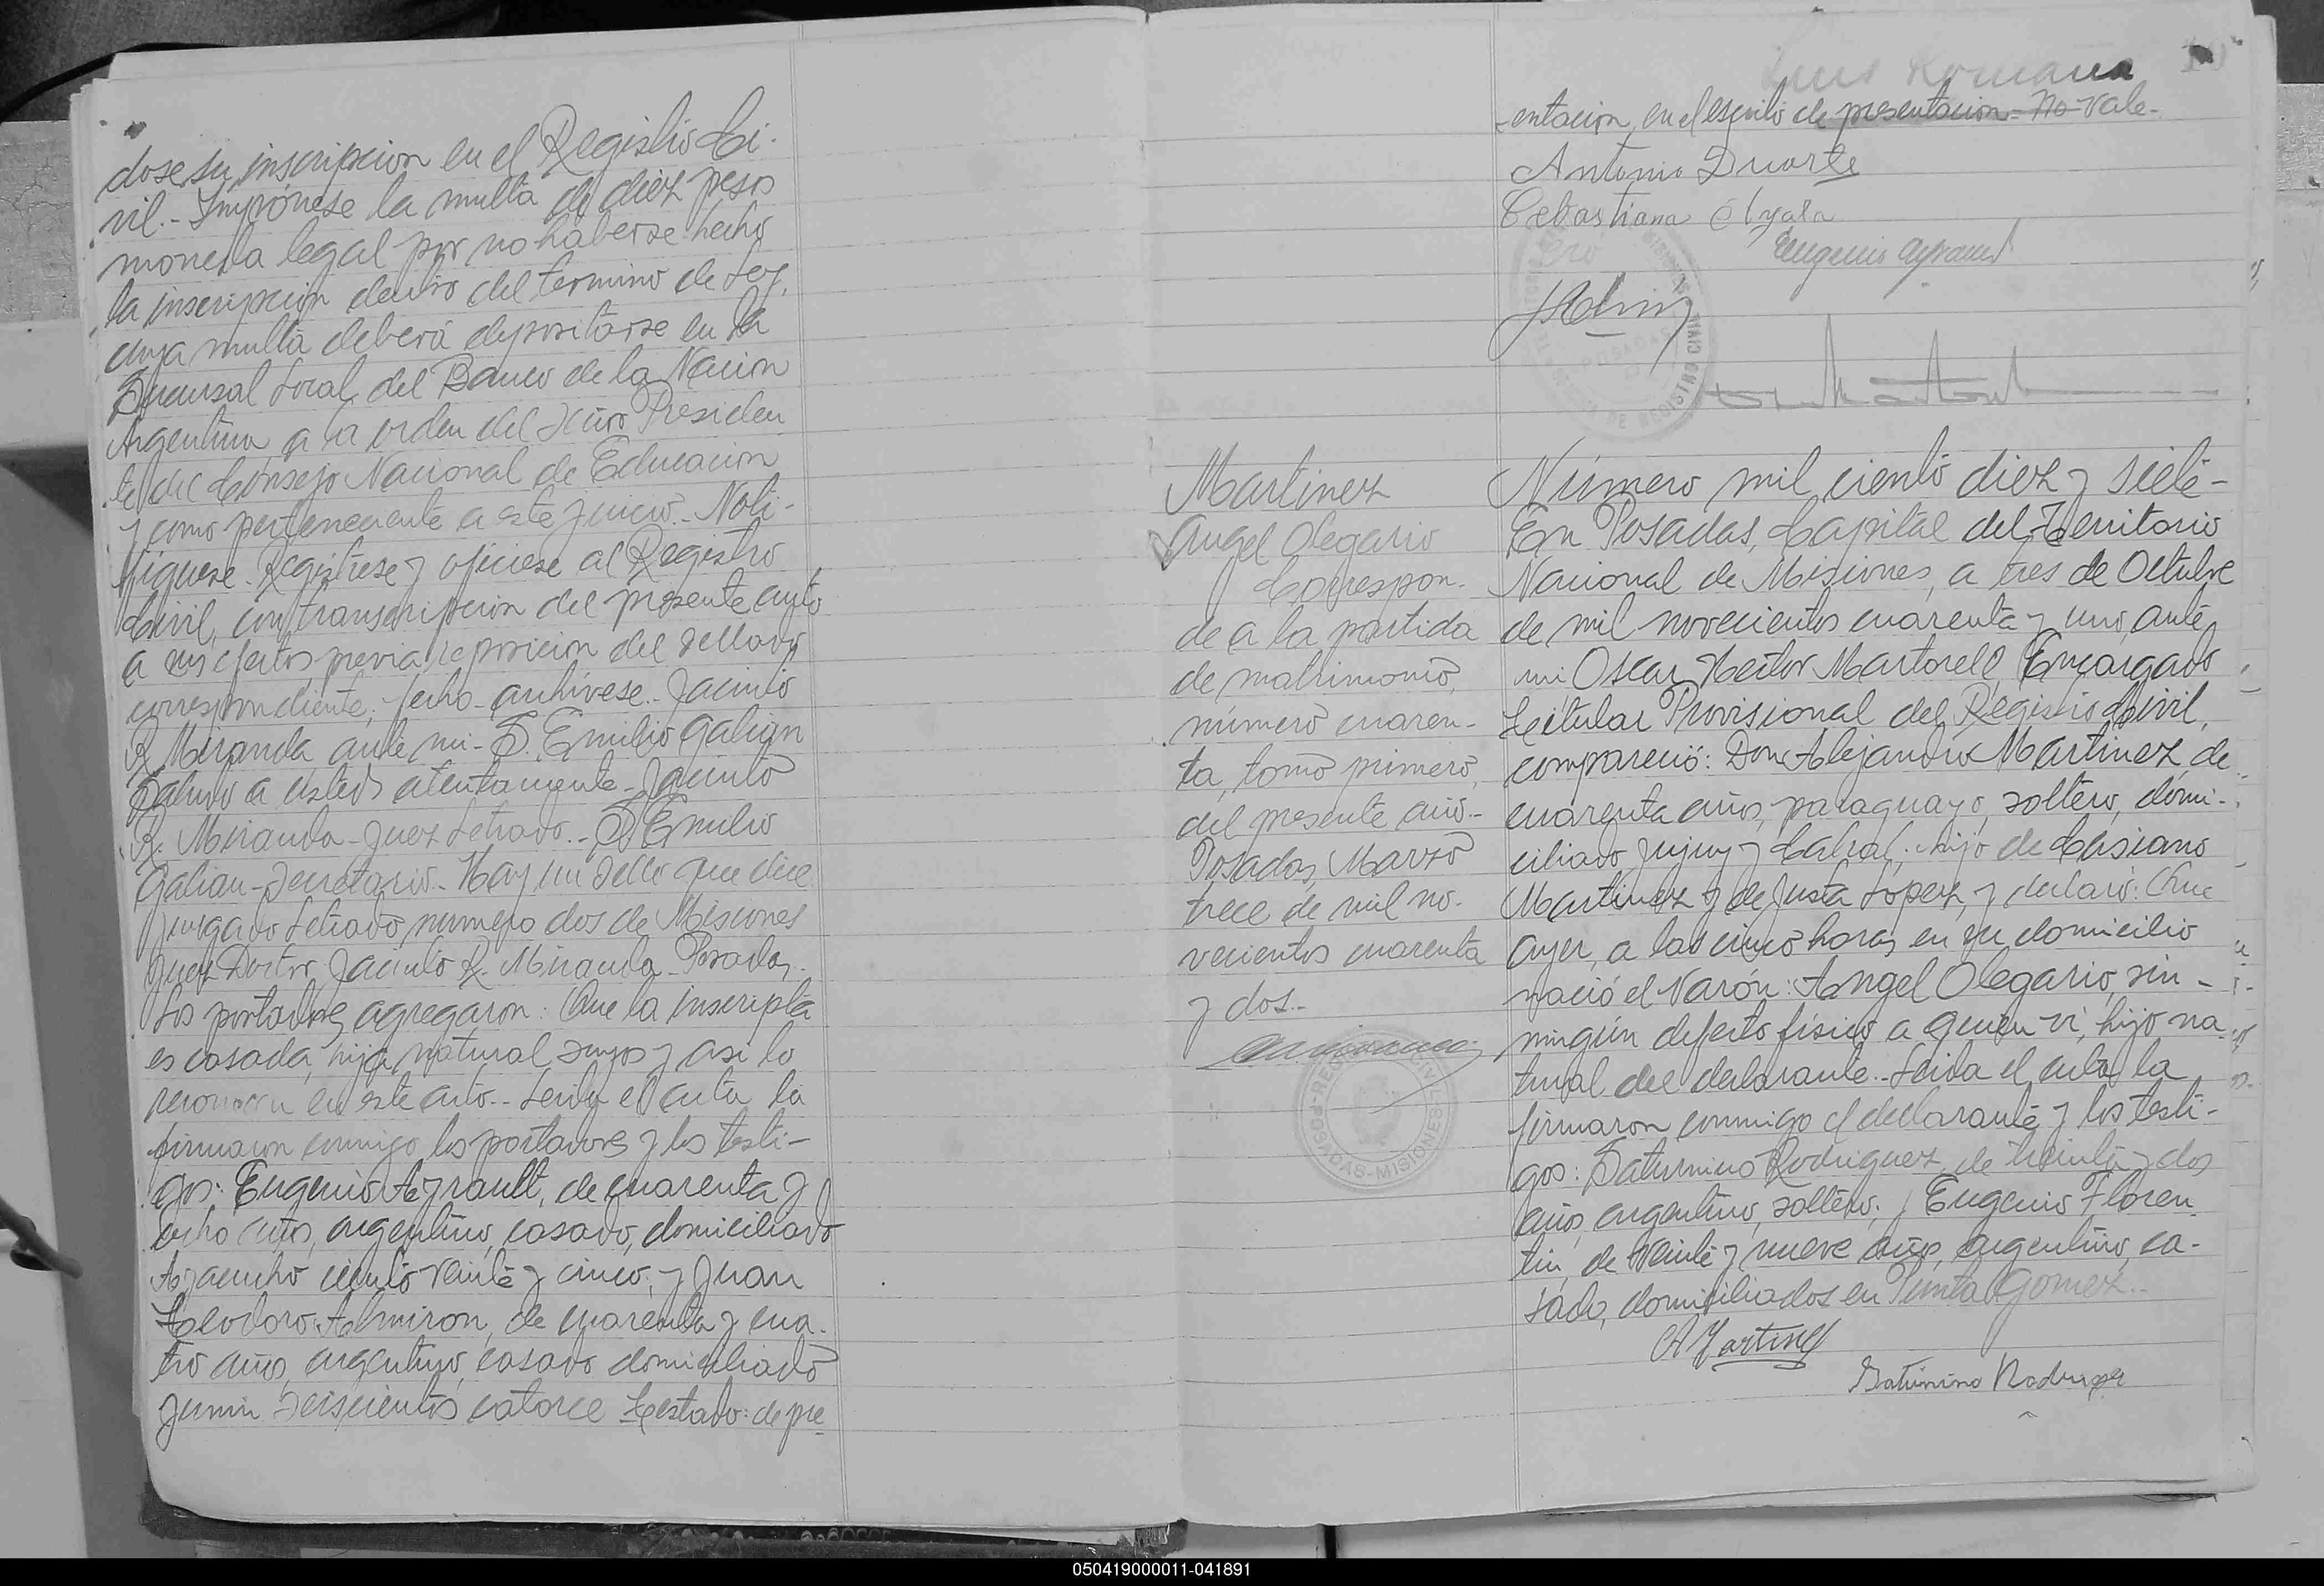 dose su inscripcion en el Registro Ci-
vil.- Imponese la multa de diez pesos
moneda legal por no haberse hecho
la inscripcion dentro del termino de Ley,
cuya multa deberá depositarse en la
Sucursal Local del Banco de la Nacion
Argentina a la orden del Señor Presiden
te del Consejo Nacional de Educacion
y como perteneciente a este juicio.- Noti-
fiquese. Registrese y oficiese al Registro
Civil, con transcripcion del presente auto
a sus efectos, previa reposicion del sellado
correspondiente; fecho archivese. Jacinto
R. Miranda, ante mi- S. Emilio Galian
Saludo a usted atentamente- Jacinto
R. Miranda- Juez Letrado.- S. Emilio
Galian- Secretario.- Hay un sello que dice
Juzgado Letrado numero dos de Misiones
Juez Doctor Jacinto R. Miranda- Posadas-
Los portadores agregaron: Que la inscripta
es casada, hija natural suya y asi lo
reconocen en este acto.- Leida el acta la
firmaron conmigo los portadores y los testi-
gos: Eugenio Ayrault, de cuarenta y
ocho años, argentino, casado, domiciliado
Ayacucho ciento veinte y cinco; y Juan
Teodoro Almiron, de cuarenta y cua-
tro años, argentino, casado domiciliado
Junin seiscientos catorce Testado: de pre
Romana
-entacion, en el escrito de presentacion- No- Vale-
Antonio Duarte
Cebastiana Ayala
Eugenio Ayrault
REGISTRO CIVIL
Martinez
Angel Olegario
Correspon-
de a la partida
de matrimonio,
número cuaren-
ta, tomo primero,
del presente año.-
Posadas, Marzo
trece de mil no-
vecientos cuarenta
y dos.-
POSADAS-MISIONES
Número mil ciento diez y siete-
En Posadas, Capital del Territorio
Nacional de Misiones, a tres de Octubre
de mil novecientos cuarenta y uno, ante
mi, Oscar Hector Martorell, Encargado
Titular Provisional del Registro Civil,
compareció: Don Alejandro Martinez, de
cuarenta años, paraguayo, soltero, domi-
ciliado Jujuy y Cabral. hijo de Casiano
Martinez y de Justa Lopez, y declaró: Que
ayer, a las cinco horas, en su domicilio
nació el Varón: Angel Olegario, sin-
ningún defecto fisico a quien vi, hijo na-
tural del declarante.- Leida el acta la
firmaron conmigo el declarante y los testi-
gos: Saturnino Rodriguez, de treinta y dos
años, argentino, soltero; y Eugenio Floren
tin, de veinte y nueve años, argentino, ca-
sado, domiciliados en Punta Gomez.-
A Martinez
Saturnino Rodriguez
050419000011-041891